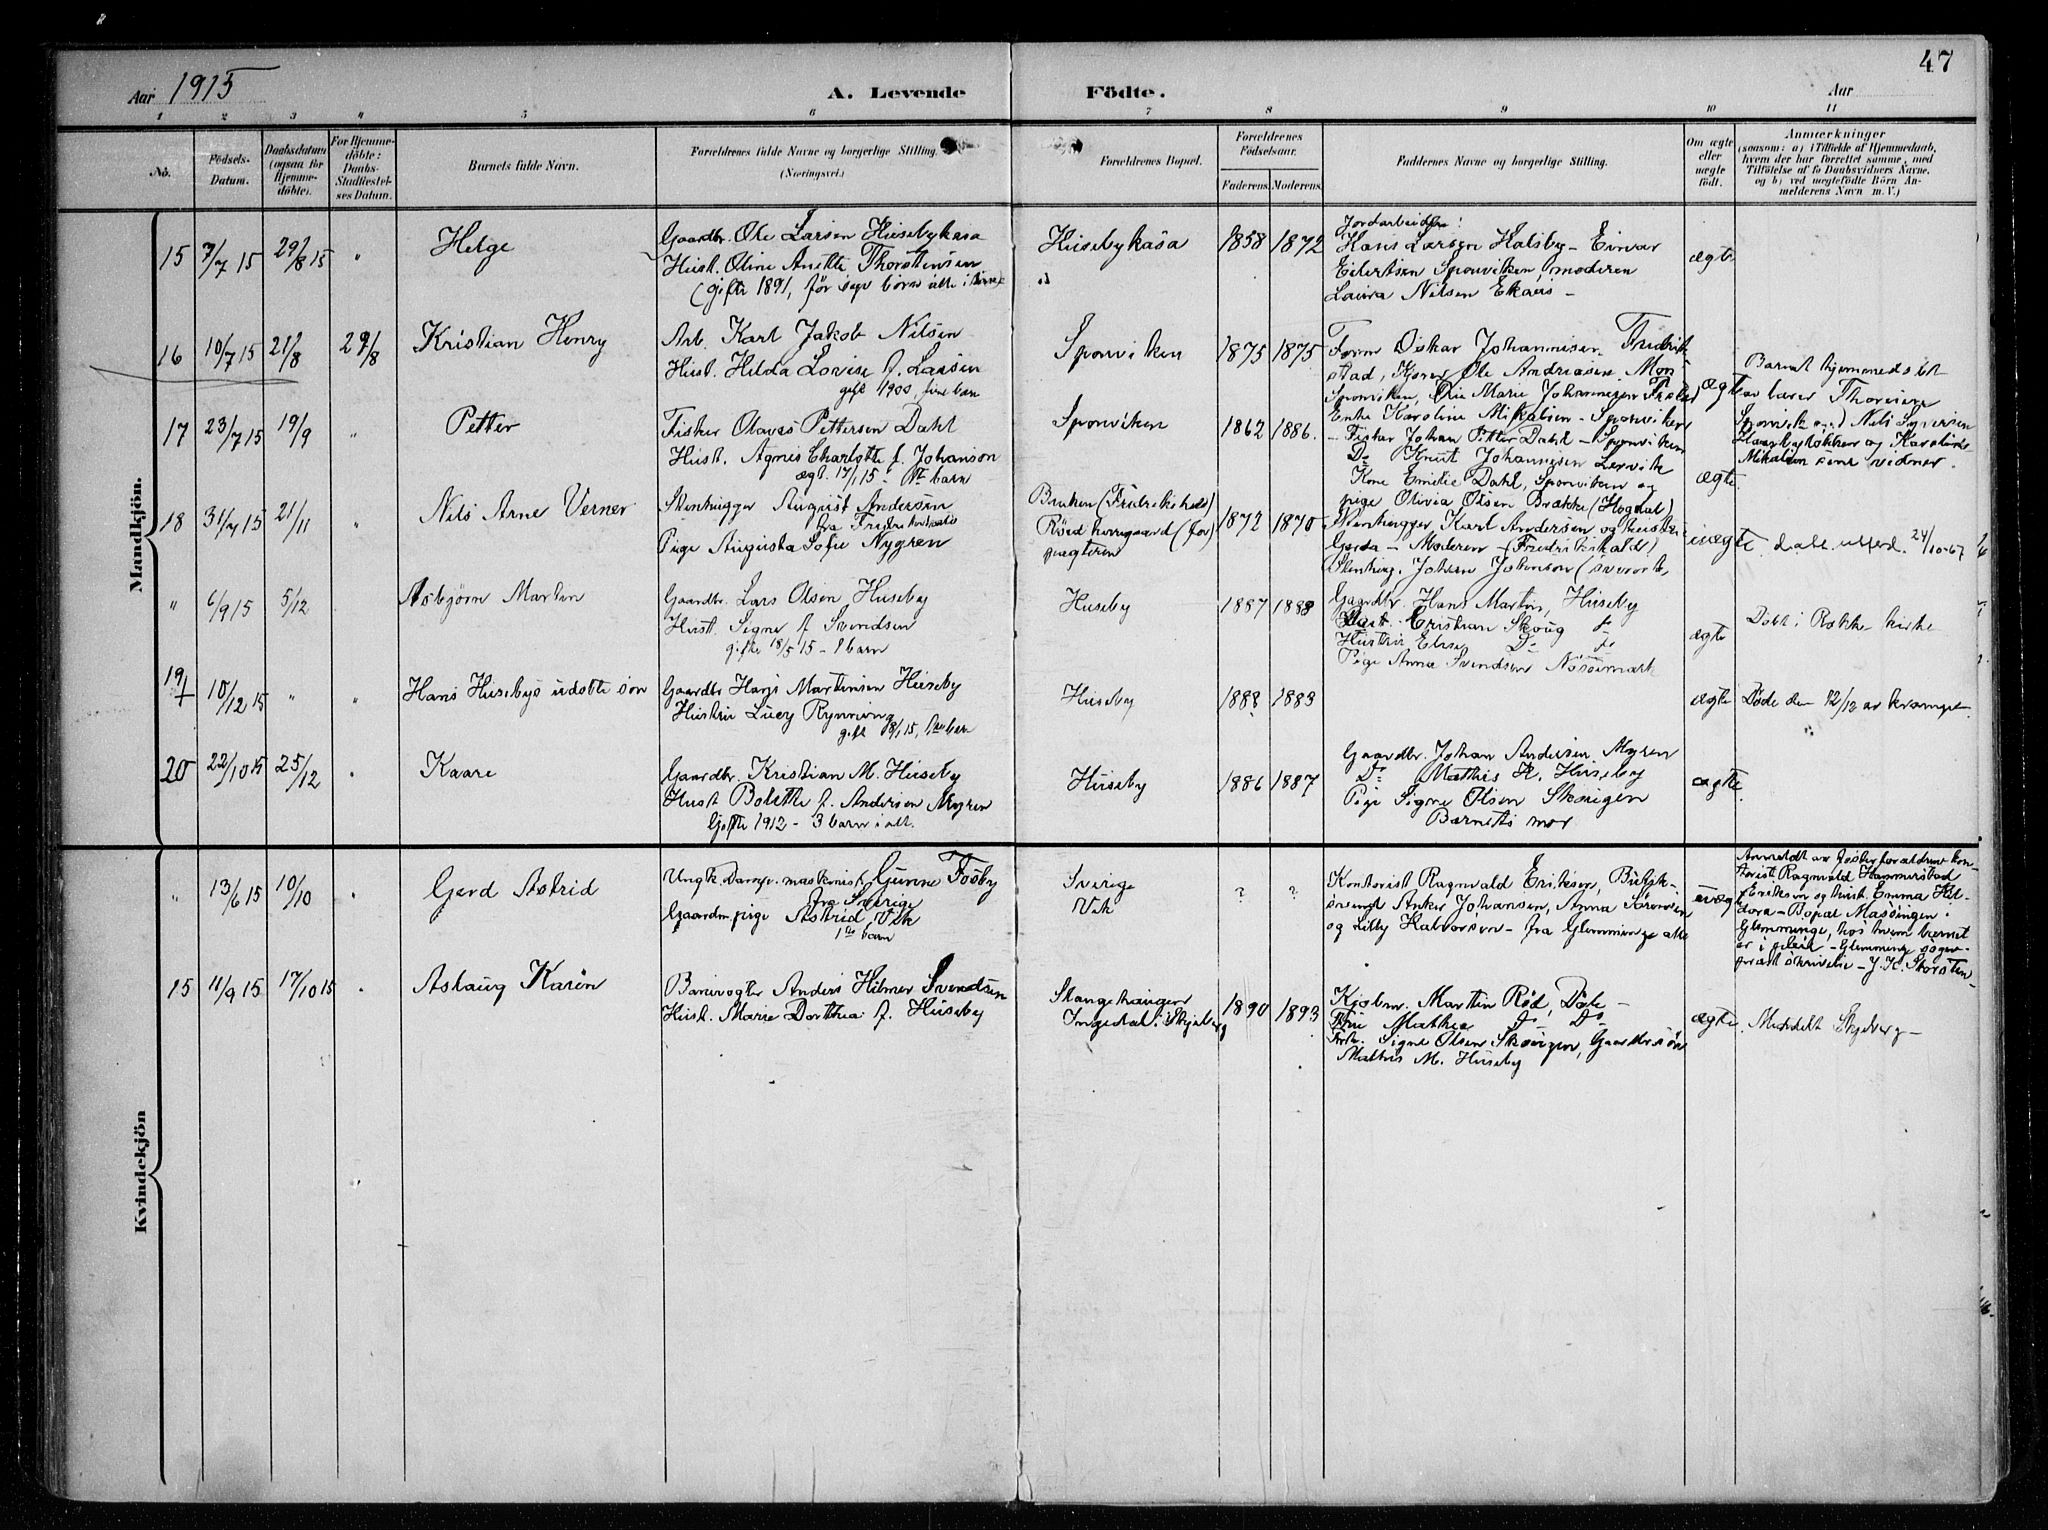 47
Aar 1915 A. Levende Födte. Aar
1 2 3 4 5 6 7 8 9 10 11
No.
Födsels-Datum.
Daabsdatum (ogsaa for Hjemmedöbte).
For Hjemmedöbte: Daabs-Stadfæstelses Datum.
Barnets fulde Navn.
Forældrenes fulde Navne og borgerlige Stilling.
(Næringsvei.)
Forældrenes Bopæl.
Forældrenes Födselsaar.
Faderens. Moderens.
Faddernes Navne og borgerlige Stilling.
Om ægte eller uægte födt.
Anmærkninger
(saasom: a) i Tilfælde af Hjemmedaab,
hvem der har forrettet samme, med
Tilföielse af to Daabsvidners Navne,
og b) ved uægtefödte Börn Anmelderens Navn m. V.)
Mandkjön.
15 7/7 15 29/8 15 " Helge
Gaardbr. Ole Larsen Husebykasa
Hust. Oline Anette Thorstensen
(gifte 1891, før syv børn alle i live)
Husebykåsa
1858 1872
Jordarbeider:
Hans Larsen Halsby – Einar
Eilertsen Sponviken, moderen
Laura Nilsen Ekaas –
ægte
16 10/7 15 21/8 29/8 Kristian Henry
Arb. Karl Jakob Nilsen
Hust. Hilda Lovise f. Larsen
gift 1900
Sponviken
1875 1875
Oskar Johannisen Fredrikstad, Ole Andreasen
Sponviken, Marie Johannesen
Enke Karoline Mikalsen – Sponviken
ægte
Barnet hjemmedøbt
av lærer Thoresen
Sponvik med Nils Syversen
og Karoline
Mikalsen som vidner.
17 23/7 15 19/9 " Petter
Fisker Olaves Pettersen Dahl
Hust. Agnes Charlotte f. Johanson
ægt. 17/1 15. 1ste barn
Sponviken
1862 1886.
– Fisker Johan Petter Dahl – Sponviken
Do Knut Johannesen Lervik
Kone Emilie Dahl, Sponviken og
pige Olivia Olsen Brække (Hogdal)
ægte
18 31/7 15 21/11 " Nils Arne Verner
Stenhugger August Andersen
fra Fredrikshald
Pige Augusta Sofie Nygren
Bakken (Fredrikshald)
Røed herregaard (for)
pagteren
1872 1870
Stenhugger Karl Andersen og hustru
Gerda – Moderen – (Fredrikshald)
Stenhug. Johan Johanson
uægte
d. att. utferd. 24/10-67
" 6/9 15 5/12 Asbjørn Martin
Gaardbr. Lars Olsen Huseby
Hust. Signe f. Svendsen
gifte 18/5 15 – 1 barn
Huseby
1887 1888
Gaardbr. Hans Martins. Huseby
Kristian Skoug
Hustru Elise Do
Pige Anna Svendsen Nössemark
ægte
Døbt i Rokke kirke
19 † 10/12 15 " " Hans Husebys udøbte søn
Gaardbr Hans Martinsen Huseby
Hustru Lucy Rynning
gift 15, 1ste barn
Huseby
1888 1883
ægte
Døde den 12/12 av krampe.
20 22/10 15 25/12 " Kaare
Gaardbr. Kristian M. Huseby
Hust Bolette f. Andersen Myren
Gifte 1912 – 3 barn i alt.
Huseby
1886 1887
Gaardbr. Johan Andersen Myren
Do Mathis H. Huseby
Pige Signe Olsen Skougen
Barnets mor
ægte.
Kvindekjön
" 13/6 15 10/10 " Gerd Astrid
Ungk. Damp. maskinist Gunne Fosby
fra Sverige
Gaardm. pige Astrid Vik
1ste barn
Sverige
Vik
? ?
Kontorist Ragnvald Eriksen,
Anker Johansen, Anna Sørensen
og Lilly Halvorsen – fra Glemminge alle
uægte
Anmeldt av fosterforældrene kontorist Ragnvald Hammerstad
Eriksen og hust. Emma Hildora – Bopal Massingen i
Glemminge, hos hvem barnet
er i pleie – Glemminge sogneprest skrivelse – J. K. Skorsten
15 11/9 15 17/10 15 " Aslaug Karin
Banevogter Anders Hilmer Svendsen
Hust. Marie Dorthea f. Huseby
Stangehaugen
Ingedal i Skjeberg
1890 1893
Kjøbm. Martin Rød, Dale –
Fru Mathea Do Do
Frk. Signe Olsen Skougen, Gaardbr. søn
Mathis M. Huseby
ægte.
Meddelt Skjeberg –